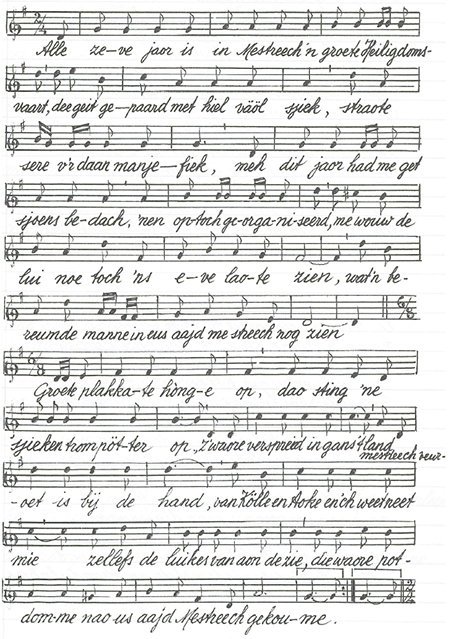 Alle ze-ve jaor is in Mestreech 'n groete Heiligdoms-
vaart, dee geit ge-paard met hiel väöl sjiek, straote
sere v'r daan manje-fiek, meh dit jaor had me get
sjoens be-dach, 'nen op-toch ge-orga-ni-seerd, me wouw de
lui noe toch 'ns e-ve lao-te zien, wat'n be-
reumde manne in eus aajd mestreech nog zien
Groete plakka-te hónge op, dao sting 'ne
sjieken trompöt-ter op, Z' waore verspreid in gans 't land,
mestreech veur-
-oet is bij de hand, van Kölle en Aoke en 'ch weet neet
mie zellefs de luikes van aon de zie, die waore pot-
dom-me nao us aajd Mestreech gekou-me.